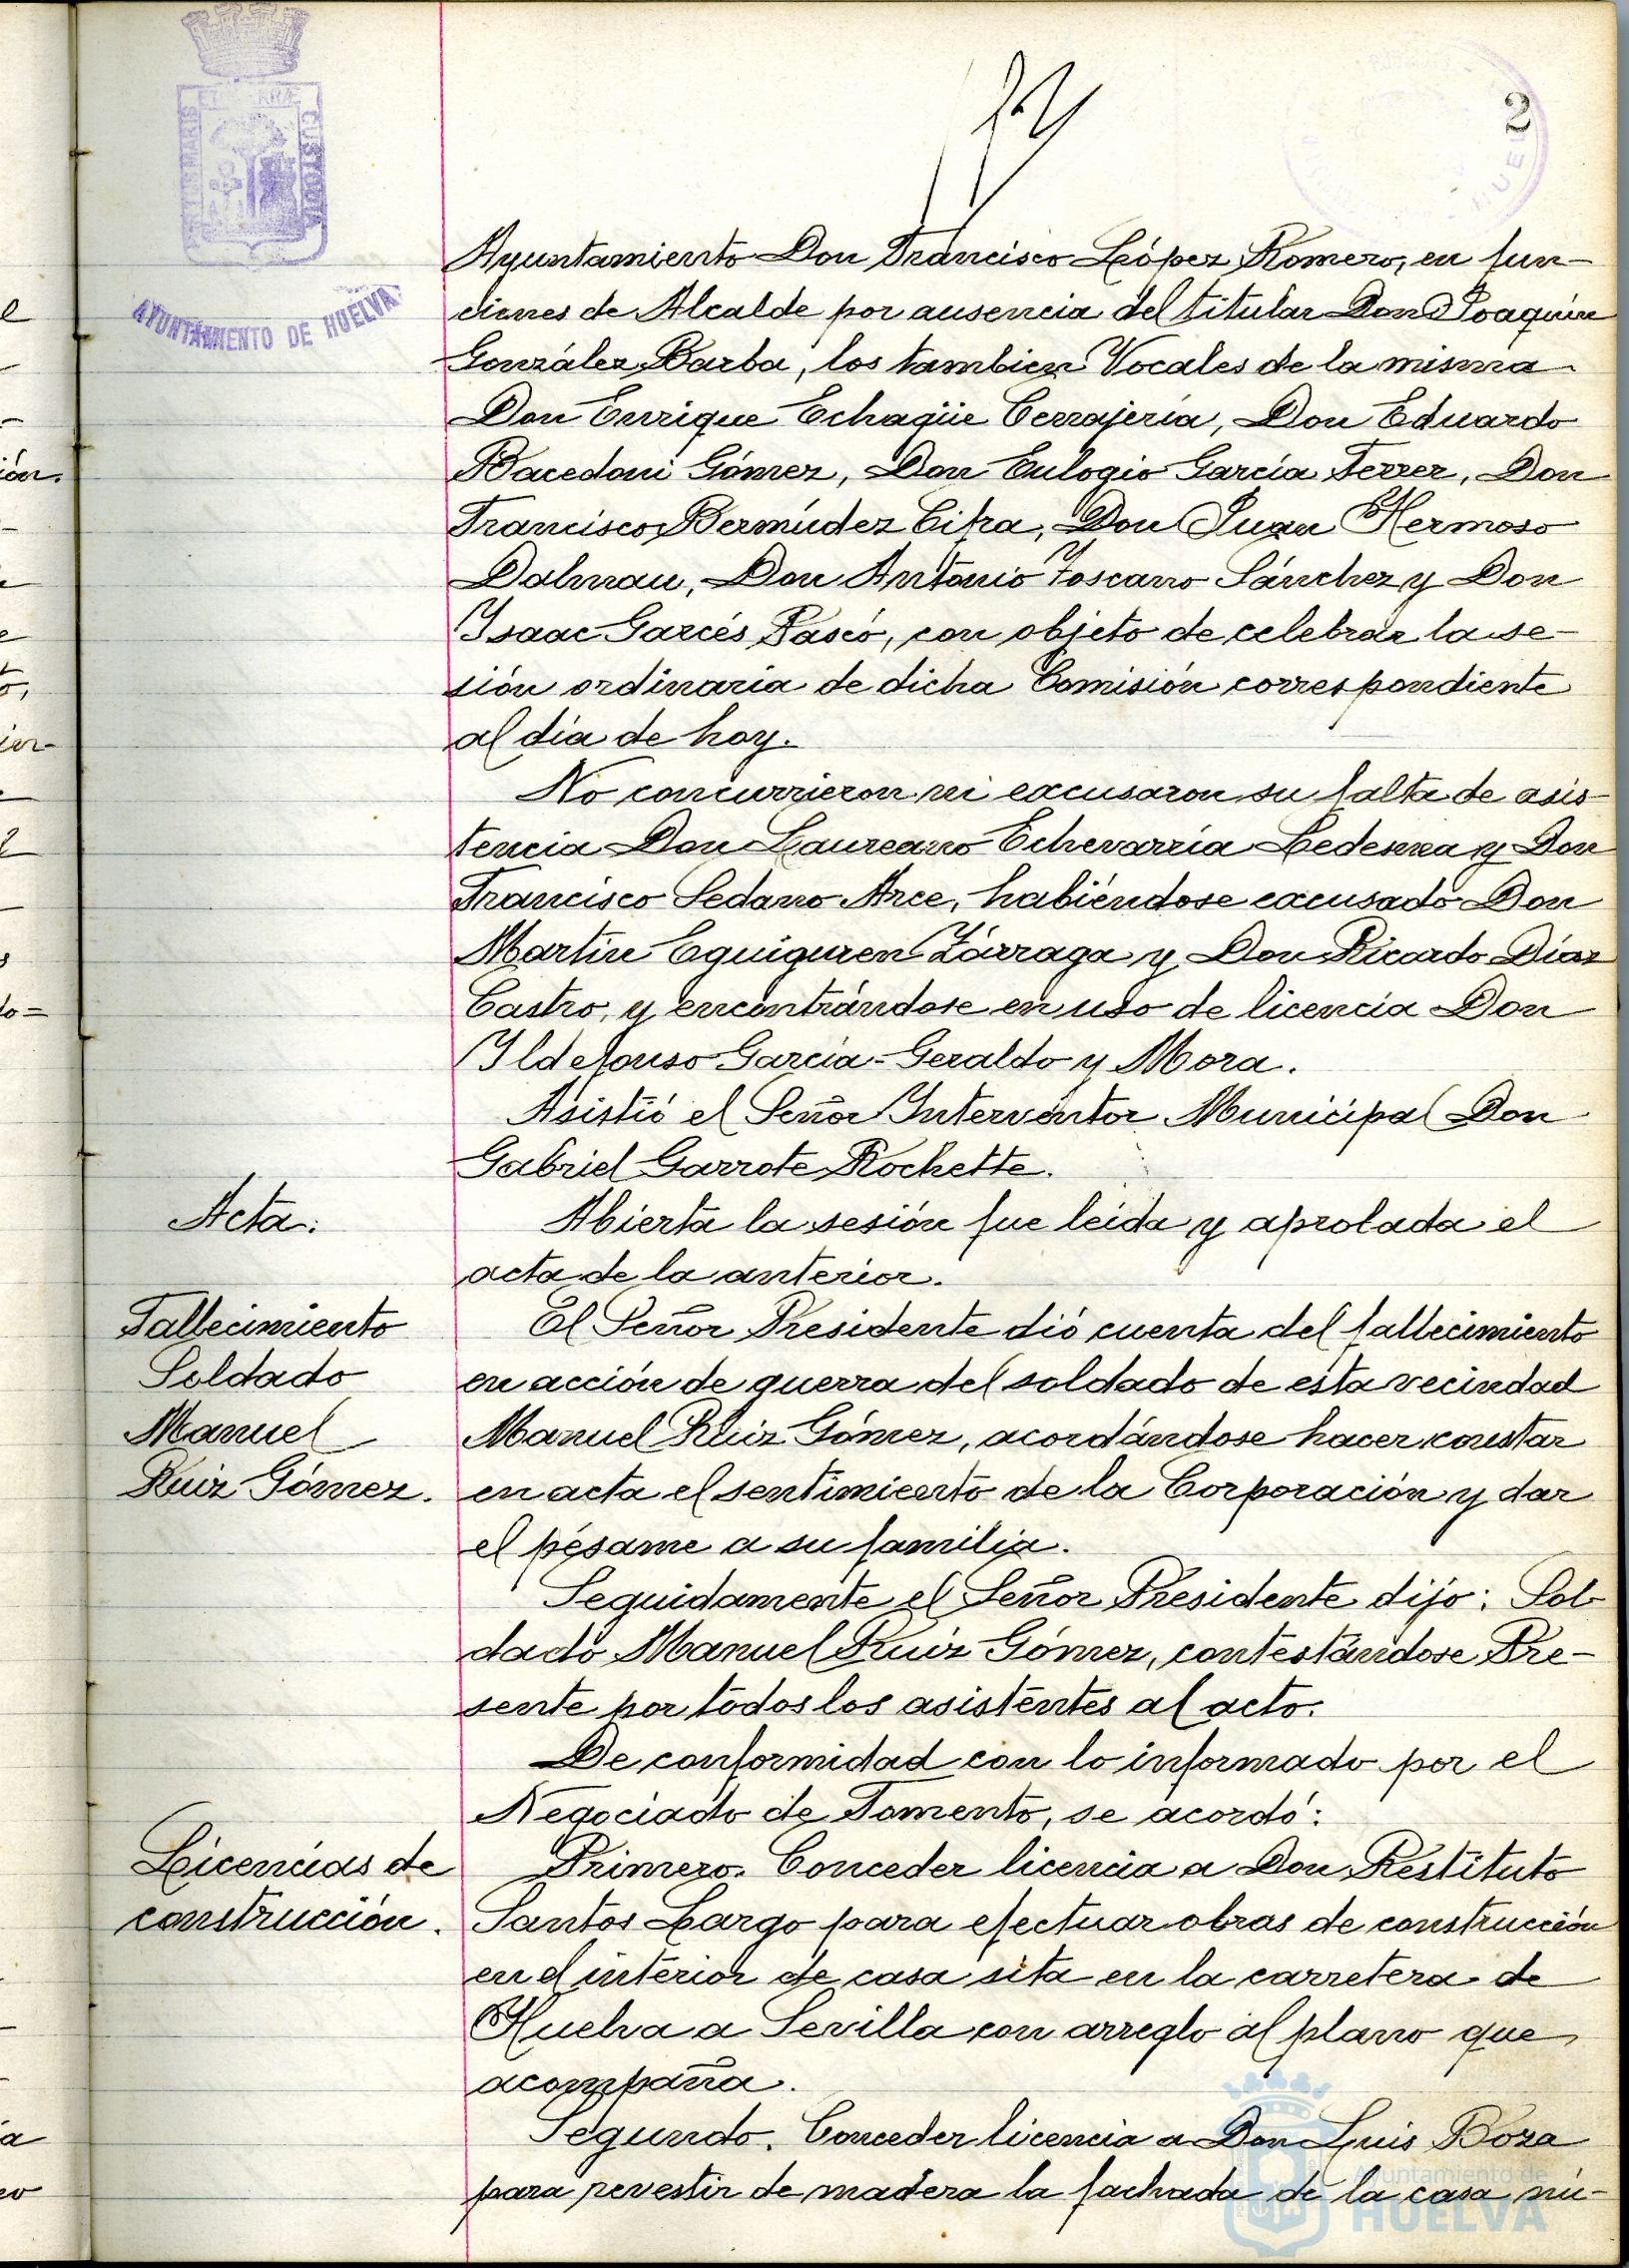 2
PORTUS MARIS ET TERRÆ CUSTODIA
AYUNTAMIENTO DE HUELVA
Ayuntamiento Don Francisco López Romero, en fun-
ciones de Alcalde por ausencia del titular Don Joaquín
González Barba, los tambien Vocales de la misma
Don Enrique Echagüe Cerrajería, Don Eduardo
Bacedoni Gómez, Don Eulogio García Ferrer, Don
Francisco Bermúdez Cifra, Don Juan Hermoso
Dalmau, Don Antonio Toscano Sánchez y Don
Isaac Garcés Pascó, con objeto de celebrar la se-
sión ordinaria de dicha Comisión correspondiente
al día de hoy.
No concurrieron ni excusaron su falta de asis-
tencia Don Laureano Echevarría Ledesma y Don
Francisco Sedano Arce, habiéndose excusado Don
Martin Eguiguren Zárraga y Don Ricardo Díaz
Castro, y encontrándose en uso de licencia Don
Ildefonso García-Geraldo y Mora.
Asistió el Señor Interventor Municipal Don
Gabriel Garrote Rochette.
Acta.
Abierta la sesión fue leida y aprobada el
acta de la anterior.
Fallecimiento
Soldado
Manuel
Ruiz Gómez.
El Señor Presidente dió cuenta del fallecimiento
en acción de guerra del soldado de esta vecindad
Manuel Ruiz Gómez, acordándose hacer constar
en acta el sentimiento de la Corporación y dar
el pésame a su familia.
Seguidamente el Señor Presidente dijo: Sol-
dado Manuel Ruiz Gómez, contestándose Pre-
sente por todos los asistentes al acto.
De conformidad con lo informado por el
Negociado de Fomento, se acordó:
Licencias de
construcción.
Primero. Conceder licencia a Don Restituto
Santos Largo para efectuar obras de construcción
en el interior de casa sita en la carretera de
Huelva a Sevilla con arreglo al plano que
acompaña.
Segundo. Conceder licencia a Don Luis Boza
para revestir de madera la fachada de la casa nú-
Ayuntamiento de
HUELVA